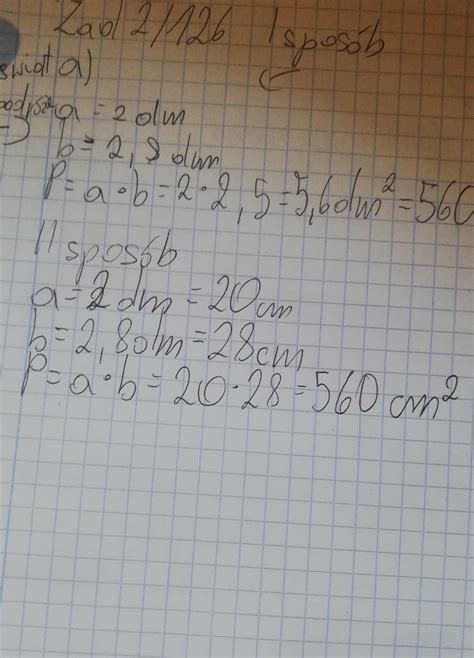 Zad 2/126 I sposób
świat a)
a = 2 dm
b = 2,8 dm
P = a · b = 2 · 2,5 = 5,6 dm² = 560
II sposób
a = 2 dm = 20 cm
b = 2,8 dm = 28 cm
P = a · b = 20 · 28 = 560 cm²